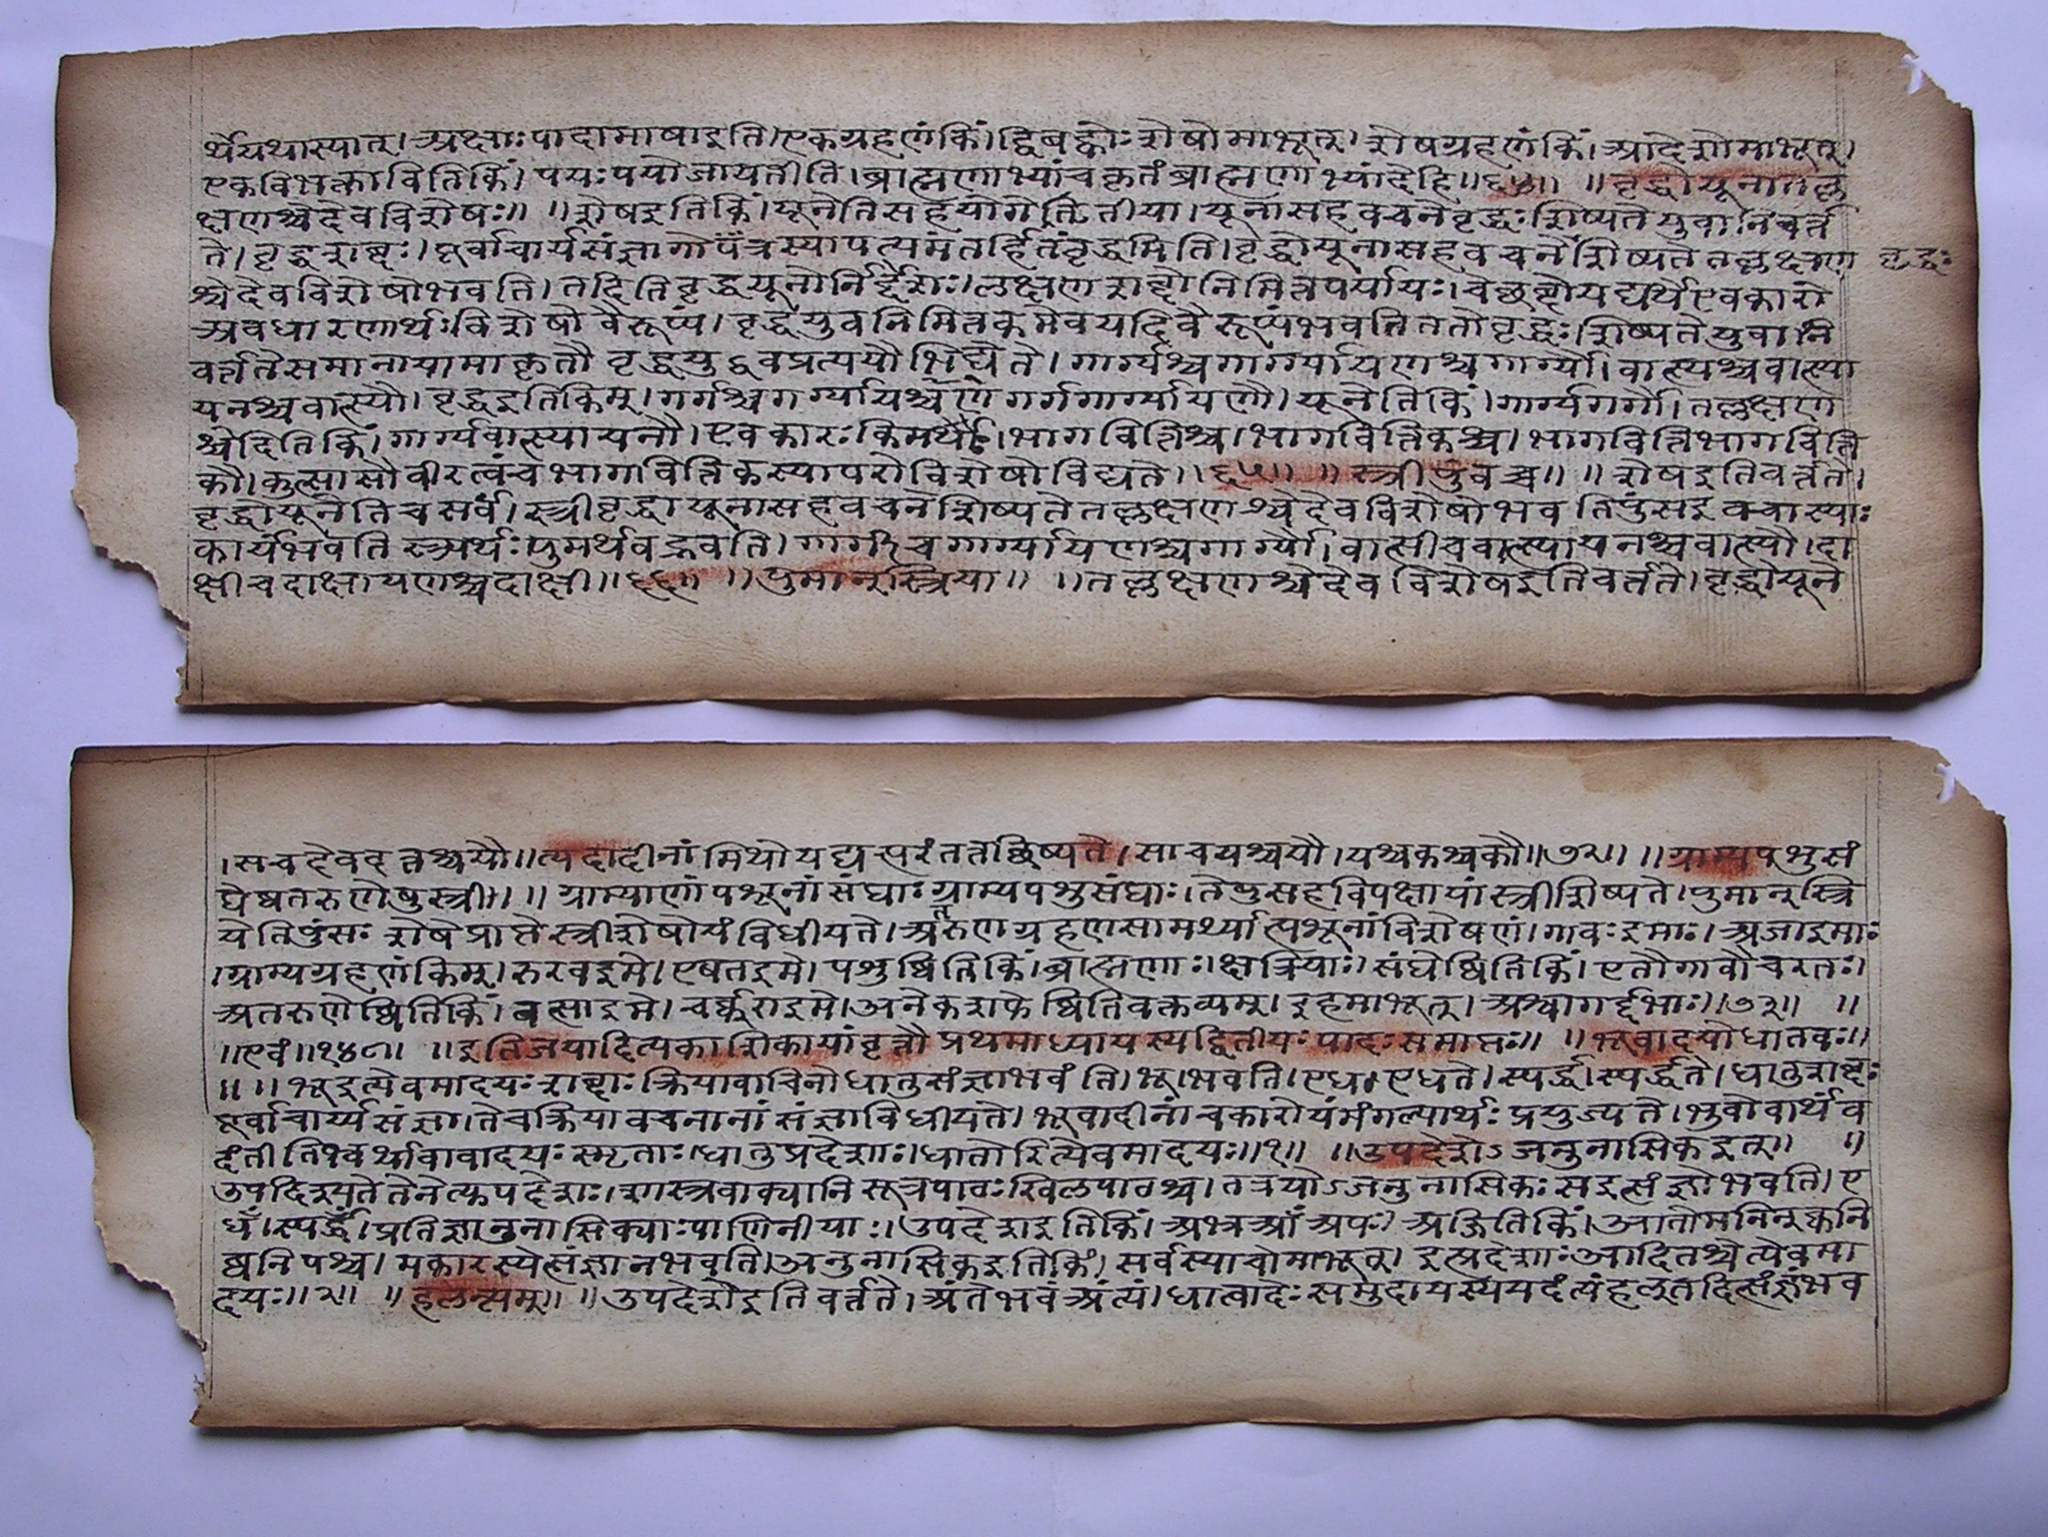 र्थेयथास्यात्। अक्षाः पादामाषाइति। एकग्रहणंकिं। द्विबह्वोः शेषोमाभूत्। शेषग्रहणंकिं। आदेशोमाभूत्।
एकविभक्तावितिकिं। पयः पयोजायतीति। ब्राह्मणाभ्यांचकृतंब्राह्मणाभ्यांदेहि॥६४॥ ॥वृद्धोयूनातल्ल
क्षणश्चेदेवविशेषः॥ ॥शेषइतिकिं। यूनेतिसहयोगेतृतीया। यूनासहवचनेवृद्धः शिष्यतेयुवानिवर्त्त
ते। वृद्धशब्दः। पूर्वाचार्यसंज्ञागोत्रस्यापत्यमंतर्हितंवृद्धमिति। वृद्धोयूनासहवचने शिष्यतेतल्लक्षण
वृद्धः
श्चेदेवविशेषोभवति। तदितिवृद्धयूनोर्निर्द्देशः। लक्षणशब्दोनिमित्तपर्यायः। चेच्छब्दोयद्यर्थेएवकारो
अवधारणार्थः। विशेषोवैरूप्यं। वृद्धयुवनिमित्तकमेवयदिवैरूप्यंभवतिततोवृद्धः। शिष्यतेयुवानि
वर्त्ततेसमानायामाकृतौ वृद्धयुवप्रत्ययौभिद्येते। गार्ग्यश्चगार्ग्यायणश्चगार्ग्यौ। वात्स्यश्चवात्स्या
यनश्चवात्स्यौ। वृद्धइतिकिम्। गर्गश्चगार्ग्यायणश्च गर्गगार्ग्यायणौ। यूनेतिकिं। गार्ग्यगर्गौ। तल्लक्षण
श्चेदितिकिं। गार्ग्यवात्स्यायनौ। एवकारः किमर्थः। भागवित्तिश्च। भागवित्तिकश्च। भागवित्तिभागवित्ति
कौ। कुत्सासौवीरत्वंचभागवित्तिकस्यापरोविशेषोविद्यते॥६५॥ ॥स्त्रीपुंवच्च॥ ॥शेषइतिवर्त्तते।
वृद्धोयूनेतिचसर्वं। स्त्रीवृद्धायूनासहवचनेशिष्यतेतल्लक्षणश्चेदेवविशेषोभवतिपुंसइवचास्याः
कार्यंभवतिस्त्र्यर्थः पुमर्थवद्भवति। गार्गीचगार्ग्यायणश्चगार्ग्यौ। वात्सीचवात्स्यायनश्चवात्स्यौ। दा
क्षीचदाक्षायणश्चदाक्षी॥६६॥ ॥पुमान्स्त्रिया॥ ॥तल्लक्षणश्चेदेवविशेषइतिवर्तते। वृद्धोयूने
।सचदेवदत्तश्चयौ॥त्यदादीनांमिथोयद्यत्परंतत्तच्छिष्यते। साचयश्चयौ। यश्चकश्चकौ॥७२॥ ॥ग्राम्यपशुसं
घेष्वतरुणेषुस्त्री॥ ॥ग्राम्याणांपशूनांसंघाः ग्राम्यपशुसंघाः। तेषुसहविवक्षायांस्त्रीशिष्यते। पुमान्स्त्रि
येतिपुंसः शेषेप्राप्तेस्त्रीशेषोयंविधीयते। अतरुणग्रहणसामर्थ्यात्पशूनांविशेषणं। गावः इमाः। अजाइमाः
।ग्राम्यग्रहणंकिम्। रुरवइमे। पृषताइमे। पशुष्वितिकिं। ब्राह्मणाः। क्षत्रियाः। संघेष्वितिकिं। एतौगावौचरतः।
अतरुणेष्वितिकिं। वत्साइमे। बर्क्कराइमे। अनेकशफेष्वितिवक्तव्यम्। इहमाभूत्। अश्वागर्द्दभाः॥७३॥ ॥
॥एवं॥१४०। ॥इतिजयादित्यकाशिकायांवृत्तौप्रथमाध्यायस्यद्वितीयः पादः समाप्तः॥ ॥भूवादयोधातवः॥
॥ ॥भूइत्येवमादयः शब्दाः क्रियावाचिनोधातुसंज्ञाभवंति। भू। भवति। एध। एधते। स्पर्द्ध। स्पर्द्धते। धातुशब्दः
पूर्वाचार्य्यसंज्ञा। तेचक्रियावचनानांसंज्ञाविधीयते। भूवादीनांवकारोयंमंगल्यार्थः प्रयुज्यते। भुवोवार्थंव
दंतीतिभ्वर्थावावादयः स्मृताः। धातुप्रदेशाः। धातोरित्येवमादयः॥१॥ ॥उपदेशेऽजनुनासिकइत्॥ ॥
उपदिश्यतेतेनेत्युपदेशः। शास्त्रवाक्यानिसूत्रपाठः खिलपाठश्च। तत्रयोऽजनुनासिकः सइत्संज्ञोभवति। ए
धँ। स्पर्द्धँ। प्रतिज्ञानुनासिक्याः पाणिनीयाः। उपदेशइतिकिं। अभ्रआँअपः। अजितिकिं। आतोमनिन्क्वनि
ब्वनिपश्च। मकारस्येत्संज्ञानभवति। अनुनासिकइतिकिं। सर्वस्याचोमाभूत्। इत्प्रदेशाः आदितश्चेत्येवमा
दयः॥२॥ ॥हलन्त्यम्॥ ॥उपदेशेइतिवर्त्तते। अंतेभवंअंत्यं। धात्वादेः समुदायस्ययदंत्यंहल्तदित्संज्ञंभव